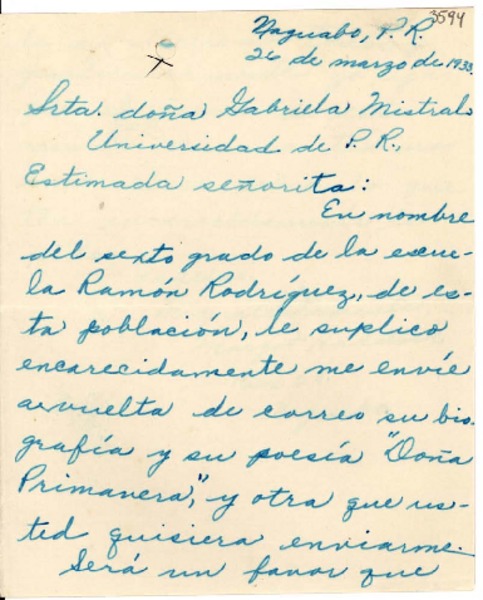 3594
Naguabo, P. R.
26 de marzo de 1933.
Srta. doña Gabriela Mistral
Universidad de P. R.,
Estimada señorita:
En nombre
del sexto grado de la escue-
la Ramón Rodríguez, de es-
ta población, le suplico
encarecidamente me envíe
a vuelta de correo su bio-
grafía y su poesía "Doña
Primavera", y otra que us-
ted quisiera enviarme.
Será un favor que